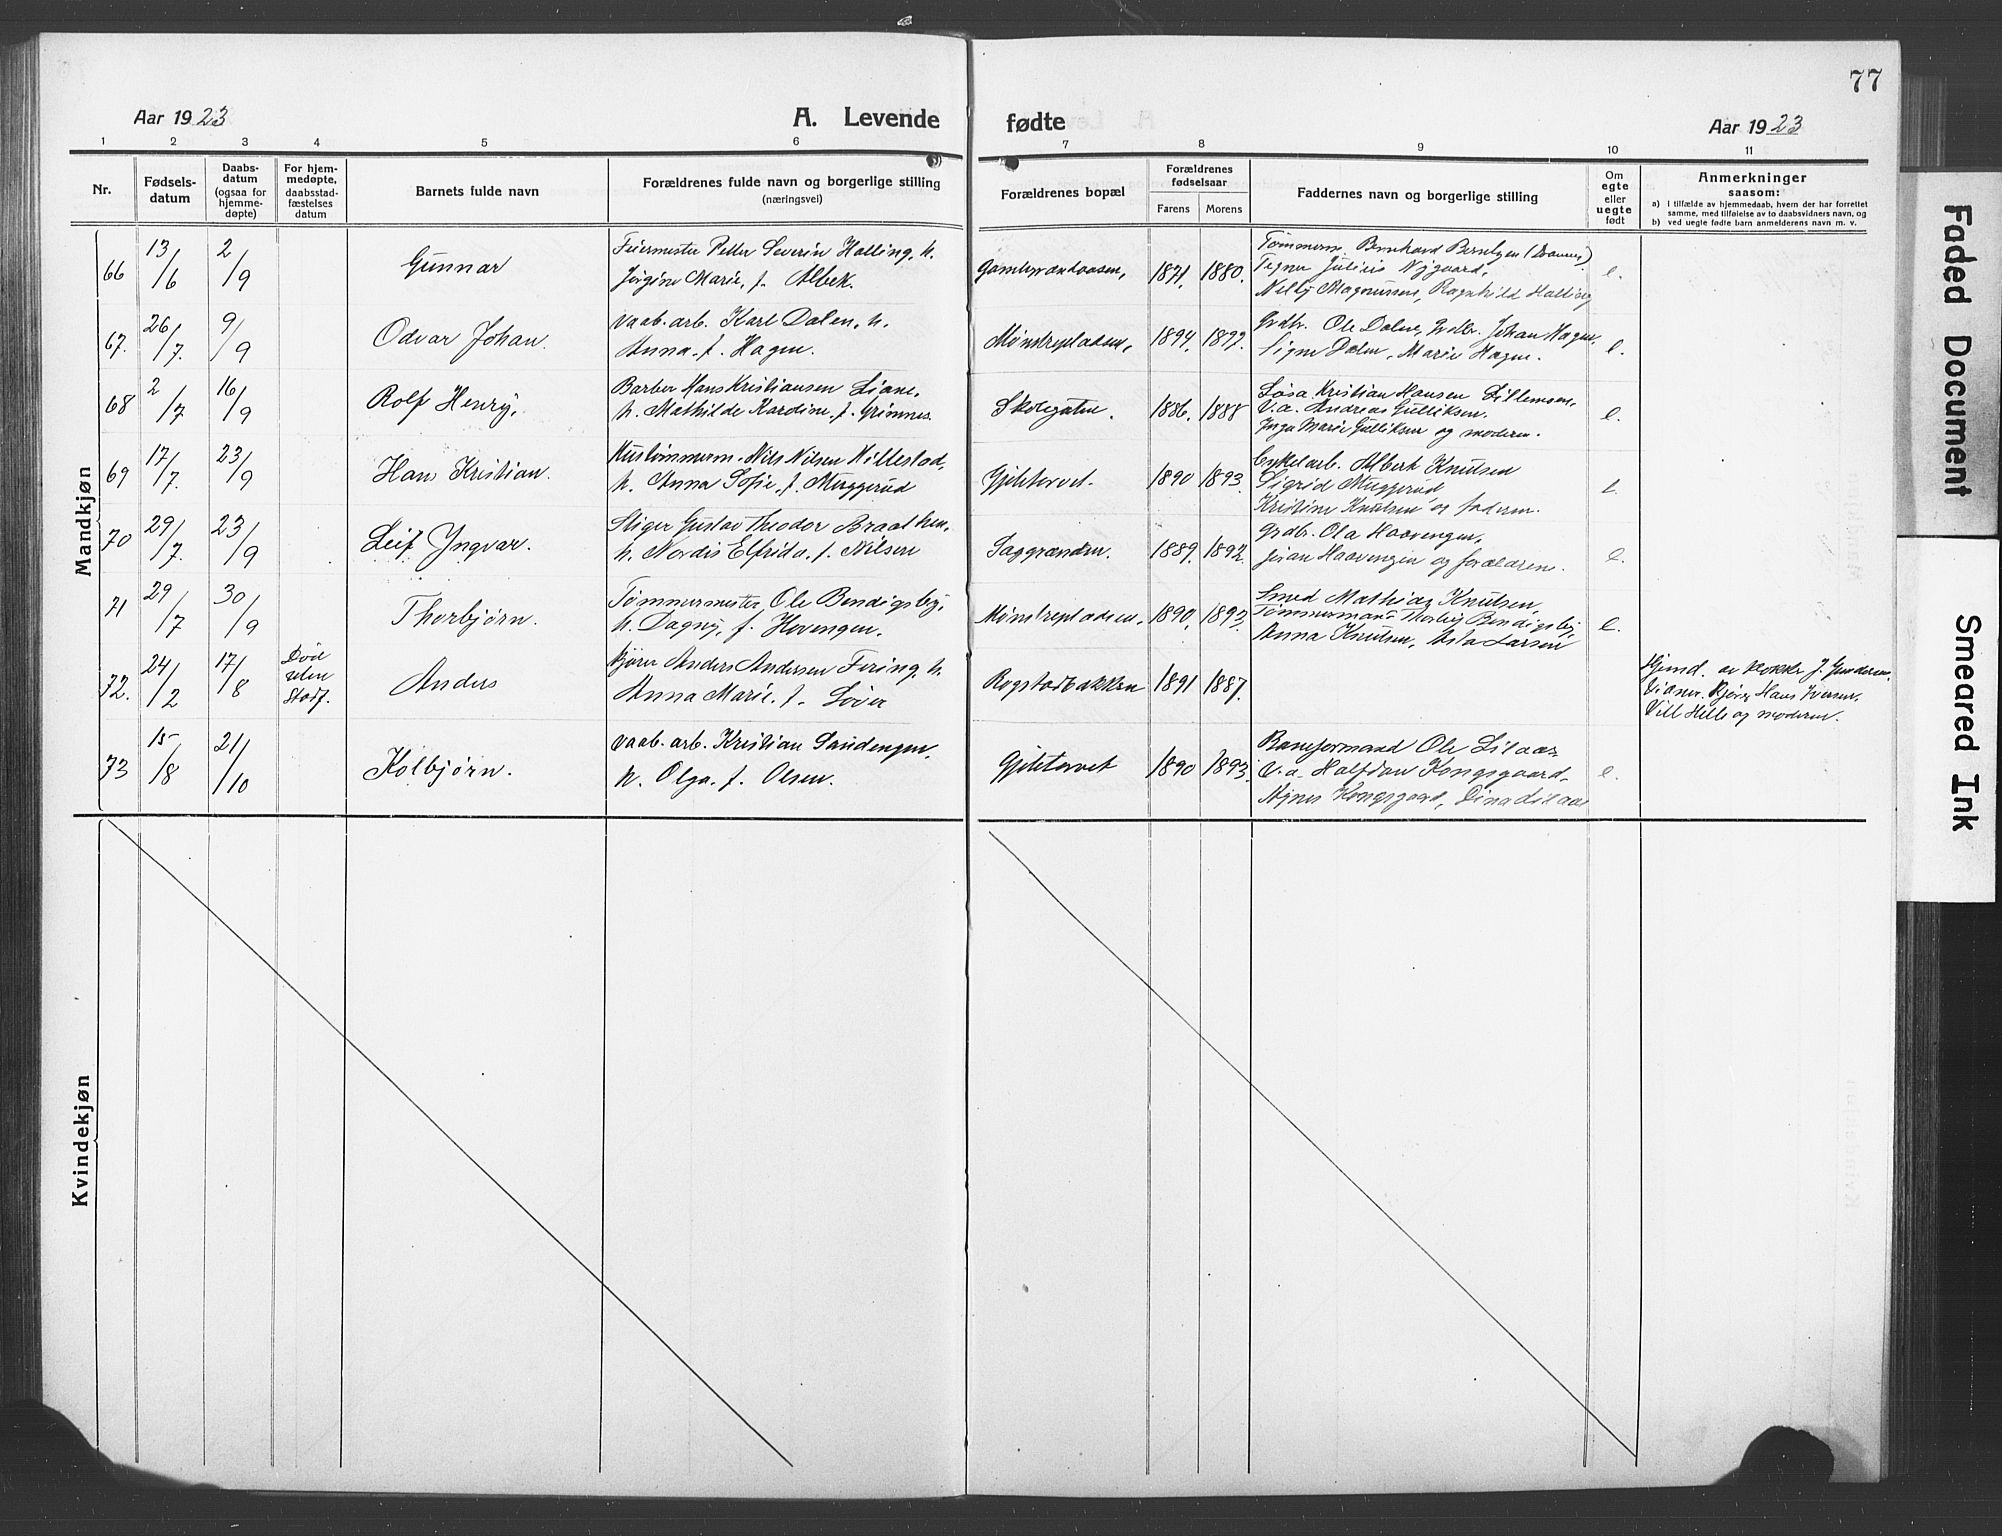 77
Aar 1923
A. Levende
fødte
Aar 1923
1 2 3 4 5 6 7 8 9 10 11
Nr.
Fødsels-
datum
Daabs-
datum
(ogsaa for
hjemme-
døpte)
For hjem-
medøpte,
daabsstad-
fæstelses
datum
Barnets fulde navn
Forældrenes fulde navn og borgerlige stilling
(næringsvei)
Forældrenes bopæl
Forældrenes
fødselsaar
Farens Morens
Faddernes navn og borgerlige stilling
Om
egte
eller
uegte
født
Anmerkninger
saasom:
a) i tilfælde av hjemmedaab, hvem der har forrettet
samme, med tilføielse av to daabsvidners navn, og
b) ved uegte fødte barn anmelderens navn m. v.
Mandkjøn
66 13/6 2/9 Gunnar
Feiermester Petter Severin Halling, h.
Jørgine Marie, f. Albek.
1871, 1880.
Tømmerm. Bernhard
Tegner Julius Nygaard,
Nelly Magnussen, Ragnhild Halling
e.
67. 26/7. 9/9 Odvar Johan.
Vaab. arb. Karl Dalen, h.
Anna. f. Hagen.
Mønstrepladsen, 1894, 1897.
Grdbr. Ole Dalen, Grdbr. Johan Hagen,
Signe Dalen, Marie Hagen.
e.
68 2/7 16/9 Rolf Henry,
Barber Hans Kristiansen Liane,
h. Mathilde Karoline, f. Grimnes.
Skolegaten. 1886, 1888
Løsa. Kristian Hansen
V.a. Andreas Gulliksen.
Inga Marie Gulliksen og moderen.
e.
69 17/7. 23/9 Hans Kristian.
Hustømmerm. Nils Nilsen Hillestad,
h. Anna Sofie, f. Muggerud
Gjeltetorvet. 1890 1893.
Cykelarb. Albert Knutsen
Sigrid Muggerud
Kristine Knutsen og faderen.
e.
70 29/7. 23/9 Leif Yngvar.
Stiger Gustav Theodor Braathen,
h. Nordis Elfrida, f. Nilsen
Saggrenden. 1889. 1892.
Grdbr. Ola Haavengen,
Haavengen og forældrene.
e.
71 29/7 30/9 Thorbjørn.
Tømmermester Ole Bendigsby,
h. Dagny, f. Hovengen.
Mønstrepladsen. 1890, 1893.
Smed Mathias Knutsen,
Tømmermand Thorleif Bendigsby,
Anna Knutsen, Asta Larsen
e.
72. 24/2 17/8
Død
uten
Stadf.
Anders
Kjører Anders Andersen Fering, h.
Anna Marie, f. Løver
Rogstadbakken 1891 1887.
Hjemd. av klokker J. Gundersen.
Vidner. Kjører Hans Iversen.
og moderen.
73 15/8 21/10 Kolbjørn.
Vaab. arb. Kristian Sandengen,
h. Olga, f. Olsen.
Gjeltetorvet 1890 1893.
Baneformand Ole Lilaas
V.a. Halfdan Kongsgaard
Agnes Kongsgaard, Dina Lilaas
e.
Kvindekjøn
Faded Document
Smeared Ink